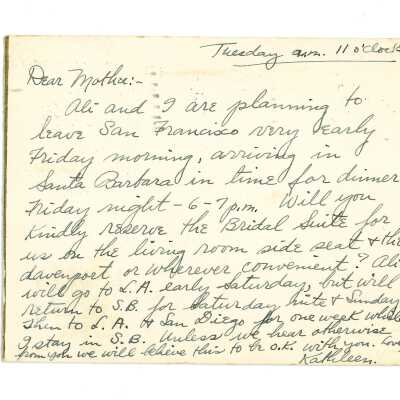 Tuesday a.m. 11 o'clock
Dear Mother:-
Ali and I are planning to
leave San Francisco very early
Friday morning, arriving in
Santa Barbara in time for dinner
Friday night - 6-7 p.m. Will you
kindly reserve the Bridal Suite for
us on the living room side seat & the
davenport, or wherever convenient? Ali
will go to L.A. early Saturday, but will
return to S.B. for Saturday nite & Sunday
then to L.A. & San Diego for one week while
I stay in S.B. Unless we hear otherwise
from you we will believe this to be O.K. with you. Love,
Kathleen.